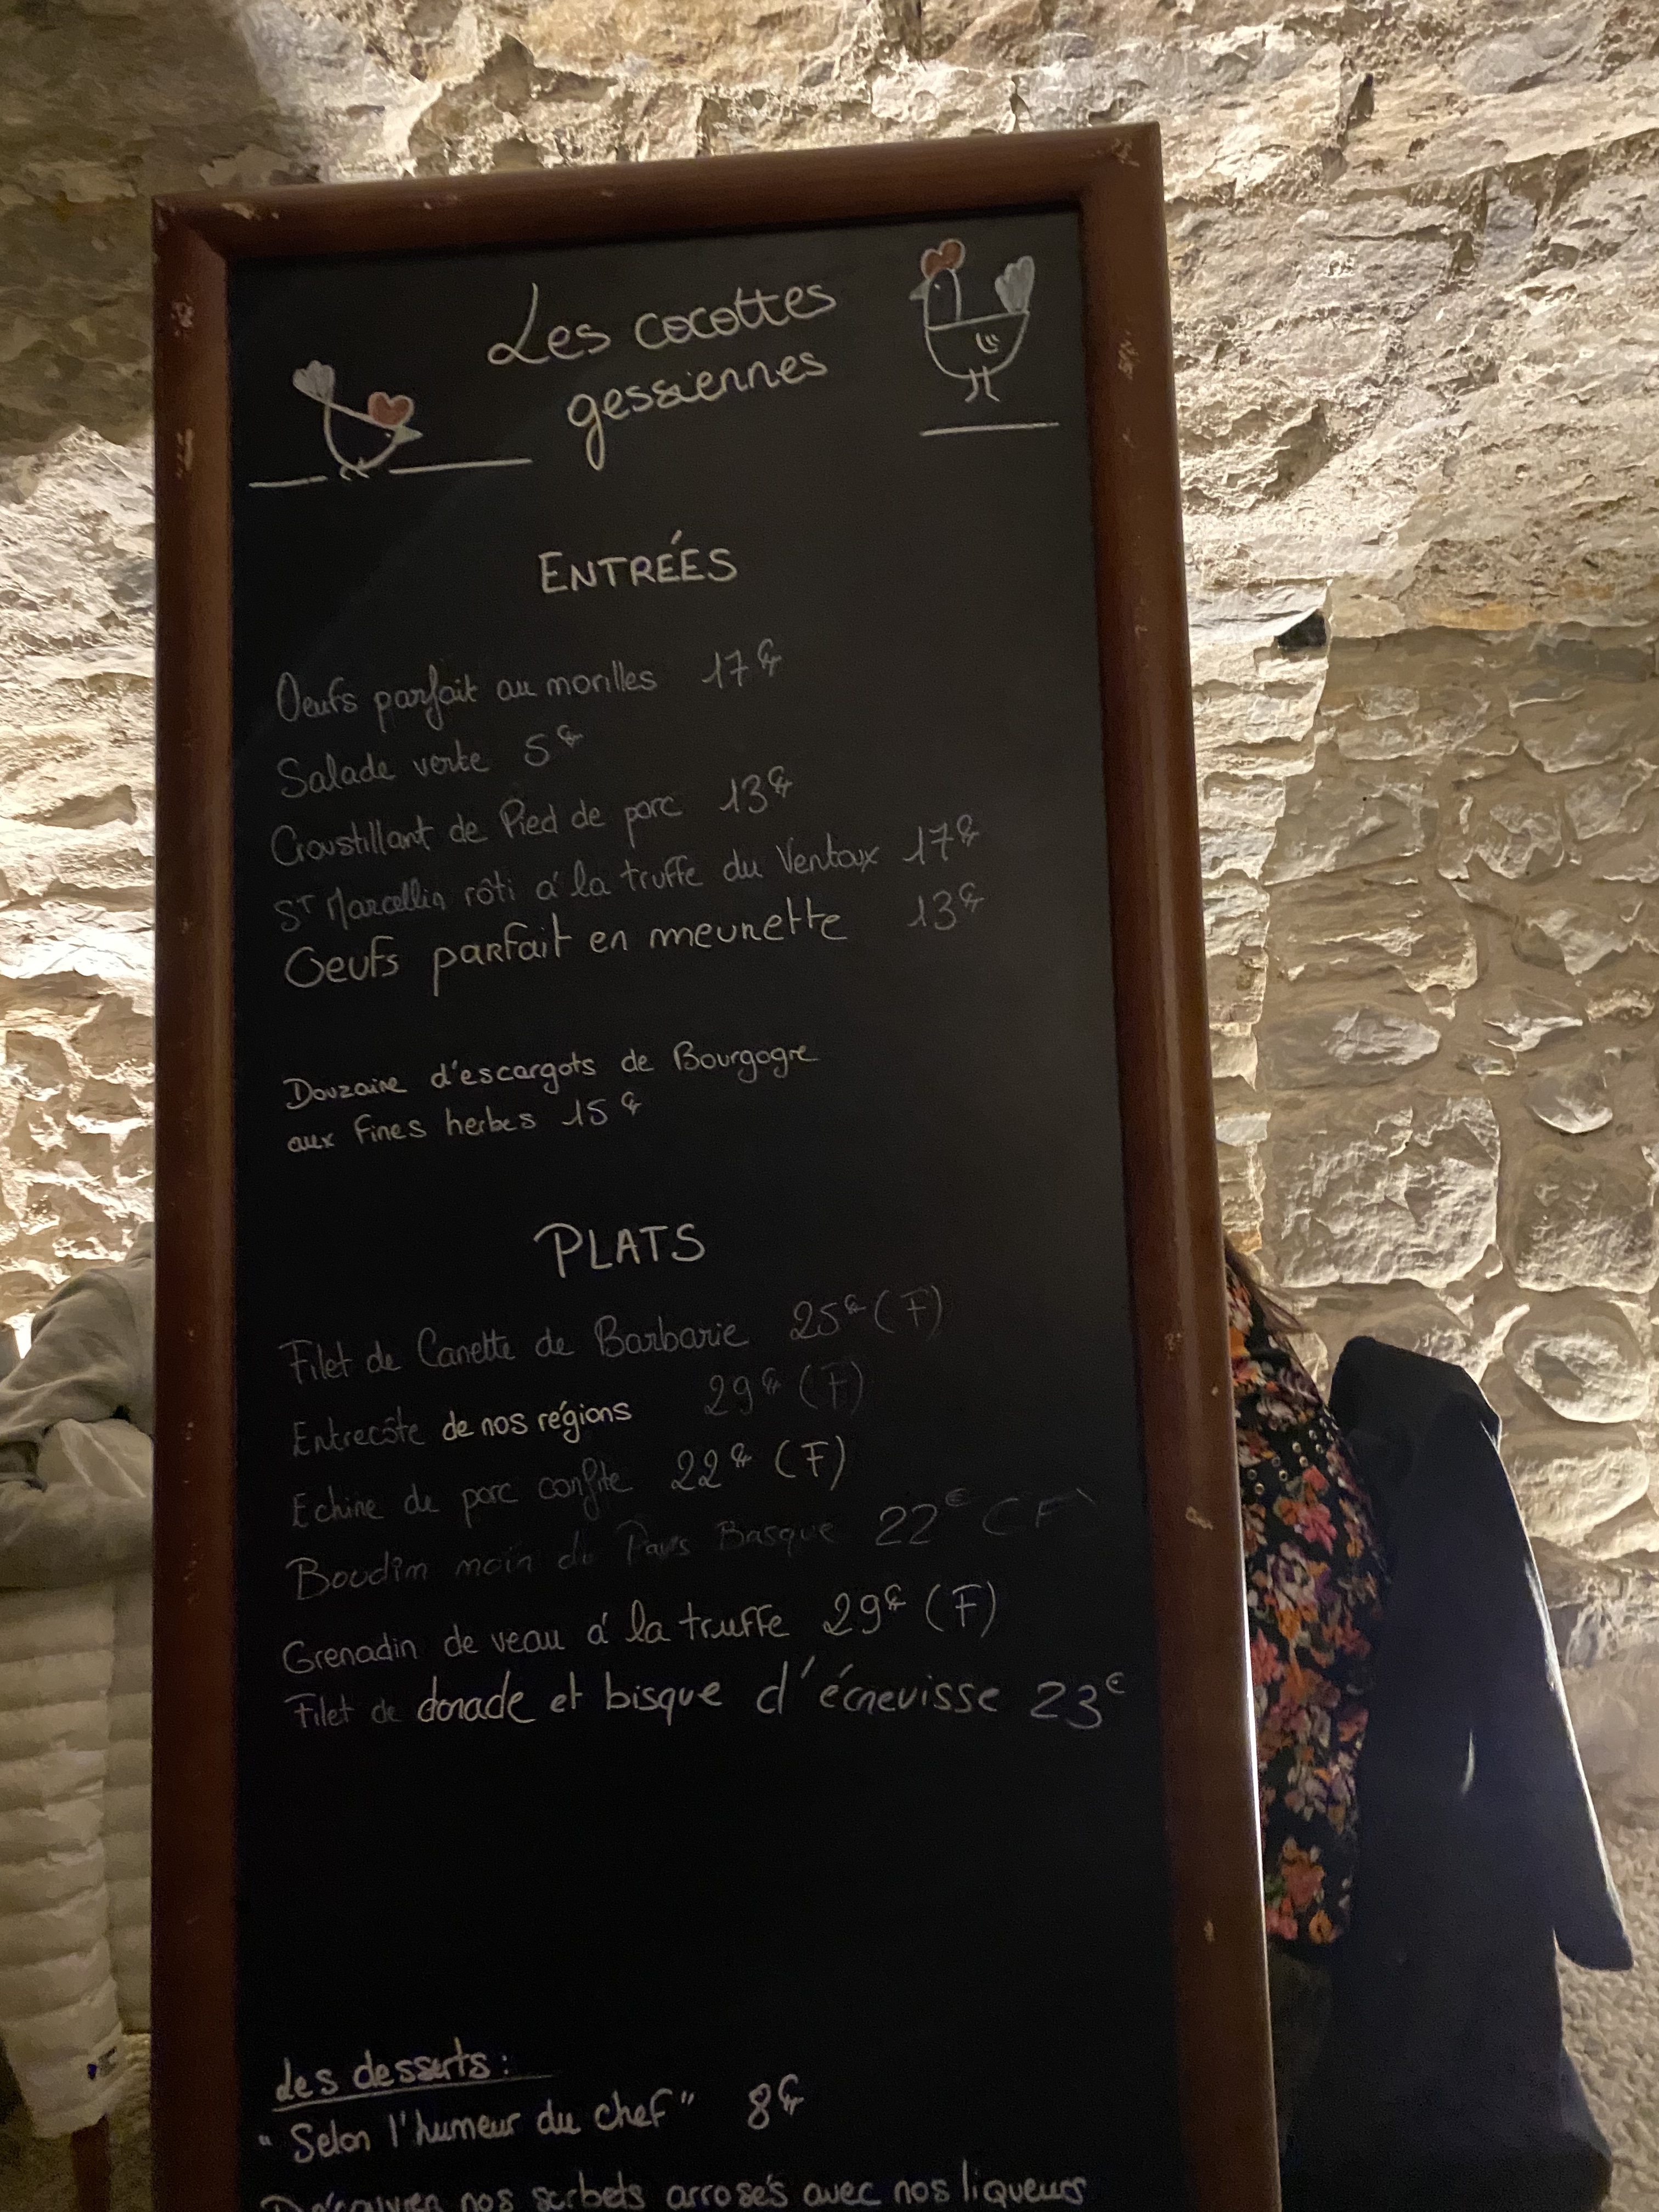 Les cocottes
gessiennes
ENTRÉES
Oeufs parfait au morilles 17€
Salade verte 5€
Croustillant de Pied de porc 13€
ST Marcellin rôti à la truffe du Ventoux 17€
Oeufs parfait en meurette 13€
Douzaine d'escargots de Bourgogne
aux fines herbes 15€
PLATS
Filet de Canette de Barbarie 25€ (F)
Entrecôte de nos régions 29€ (F)
Echine de porc confite 22€ (F)
Boudin noir du Pays Basque 22€ (F)
Grenadin de veau à la truffe 29€ (F)
Filet de dorade et bisque d'écrevisse 23€
des desserts:
"Selon l'humeur du chef" 8€
nos sorbets arrosés avec nos liqueurs